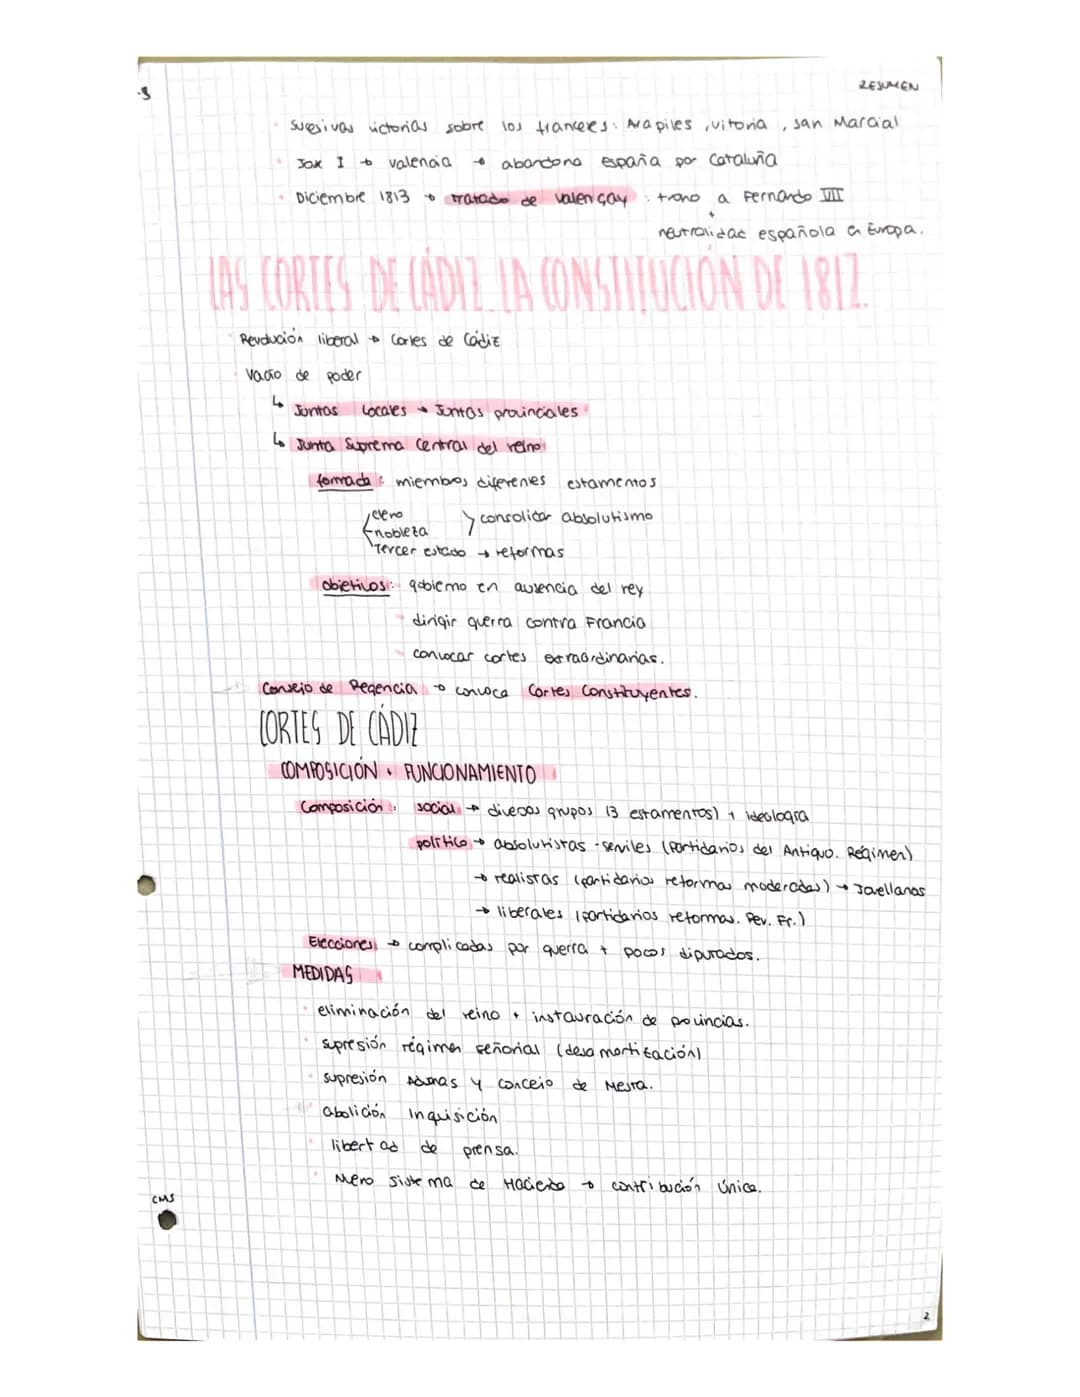 RESUMEN
sucesivas victorias sobre los franceses: Arapiles, vitoria, san Marcial
José I → valencia → abandona españa por Cataluña
Diciembre 1813 → tratado de valençay : trono a Fernando VII
+
neutralidad española en Europa.
LAS CORTES DE CÁDIZ. LA CONSTITUCIÓN DE 1812.
Revolución liberal → Cortes de Cádiz
Vacío de poder
↳ Juntas Locales → Juntas provinciales
↳ Junta Suprema Central del reino
formada: miembros diferentes estamentos
clero
nobleza > consolidar absolutismo
Tercer estado → reformas
objetivos: gobierno en ausencia del rey
dirigir guerra contra Francia
convocar cortes extraordinarias.
Consejo de Regencia → convoca Cortes Constituyentes.
CORTES DE CÁDIZ
COMPOSICIÓN + FUNCIONAMIENTO
Composición: social → diversos grupos (3 estamentos) + ideología
político → absolutistas - serviles (partidarios del Antiguo. Régimen)
→ realistas (partidarios reformas moderadas) → Jovellanos
→ liberales (partidarios reformas. Rev. Fr.)
Elecciones → complicadas por guerra + pocos diputados.
MEDIDAS
eliminación del reino + instauración de provincias.
supresión régimen señorial (desamortización)
supresión Aduanas y Concejo de Mesta.
abolición Inquisición
libertad de prensa.
Nuevo sistema de Hacienda → contribución única.
CMS
2